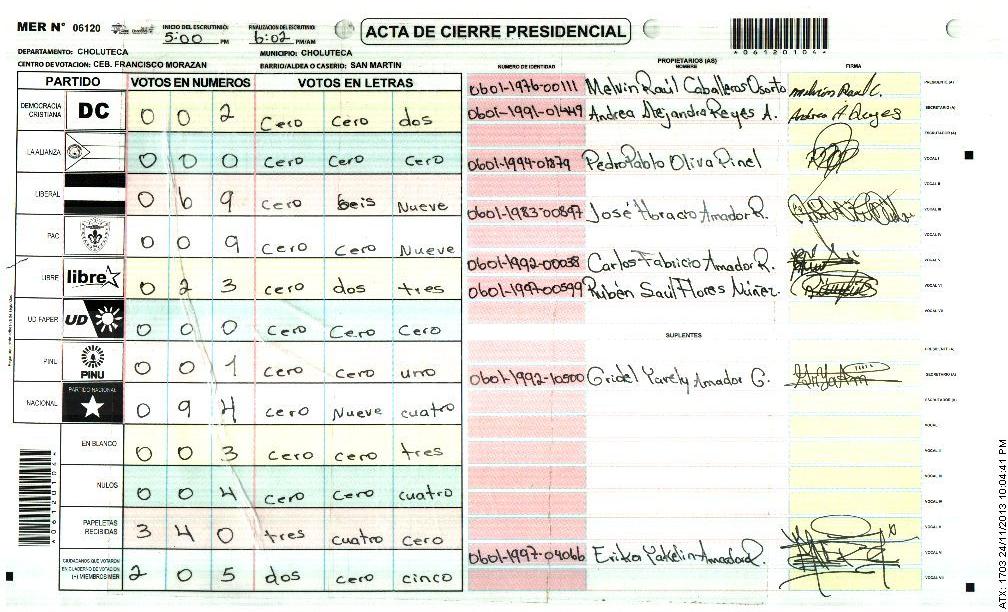 MER N° 06120
INICIO DEL ESCRUTINIO: 5:00 PM
FINALIZACION DEL ESCRUTINIO: 6:02 PM/AM
ACTA DE CIERRE PRESIDENCIAL
A06120104A
DEPARTAMENTO: CHOLUTECA
MUNICIPIO: CHOLUTECA
CENTRO DE VOTACION: CEB. FRANCISCO MORAZAN
BARRIO/ALDEA O CASERIO: SAN MARTIN
PARTIDO VOTOS EN NUMEROS VOTOS EN LETRAS
DEMOCRACIA CRISTIANA DC 0 0 2 cero cero dos
LA ALIANZA 0 0 0 cero cero cero
LIBERAL 0 6 9 cero seis Nueve
PAC 0 0 9 cero cero Nueve
LIBRE libre 0 2 3 cero dos tres
UD FAPER UD 0 0 0 cero cero cero
PINU PINU 0 0 1 cero cero uno
NACIONAL PARTIDO NACIONAL 0 9 4 cero Nueve cuatro
EN BLANCO 0 0 3 cero cero tres
NULOS 0 0 4 cero cero cuatro
PAPELETAS RECIBIDAS 3 4 0 tres cuatro cero
CIUDADANOS QUE VOTARON EN CUADERNO DE VOTACION (+) MIEMBROS MER 2 0 5 dos cero cinco
PROPIETARIOS (AS)
NUMERO DE IDENTIDAD NOMBRE FIRMA
0601-1976-00111 Melvin Raúl Caballeros Osorto Melvin Raul C. PRESIDENTE (A)
0601-1991-01449 Andrea Alejandra Reyes A. Andrea A Reyes SECRETARIO (A)
ESCRUTADOR (A)
0601-1994-01879 Pedro Pablo Oliva Pinel VOCAL I
VOCAL II
0601-1983-00897 José Horacio Amador R. VOCAL III
VOCAL IV
0601-1992-00038 Carlos Fabricio Amador R. VOCAL V
0601-1997-00599 Rubén Saúl Flores Núñez VOCAL VI
VOCAL VII
SUPLENTES
PRESIDENTE (A)
0601-1992-10500 Gridel Yarely Amador G. SECRETARIO (A)
ESCRUTADOR (A)
VOCAL I
VOCAL II
VOCAL III
VOCAL IV
VOCAL V
0601-1997-04066 Erika Yakelin Amador R. VOCAL VI
VOCAL VII
A06120104A
ATX: 1703 24/11/2013 10:04:41 PM